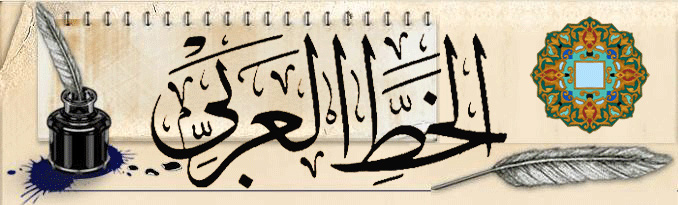 الخَطُّ العَرَبِيّ